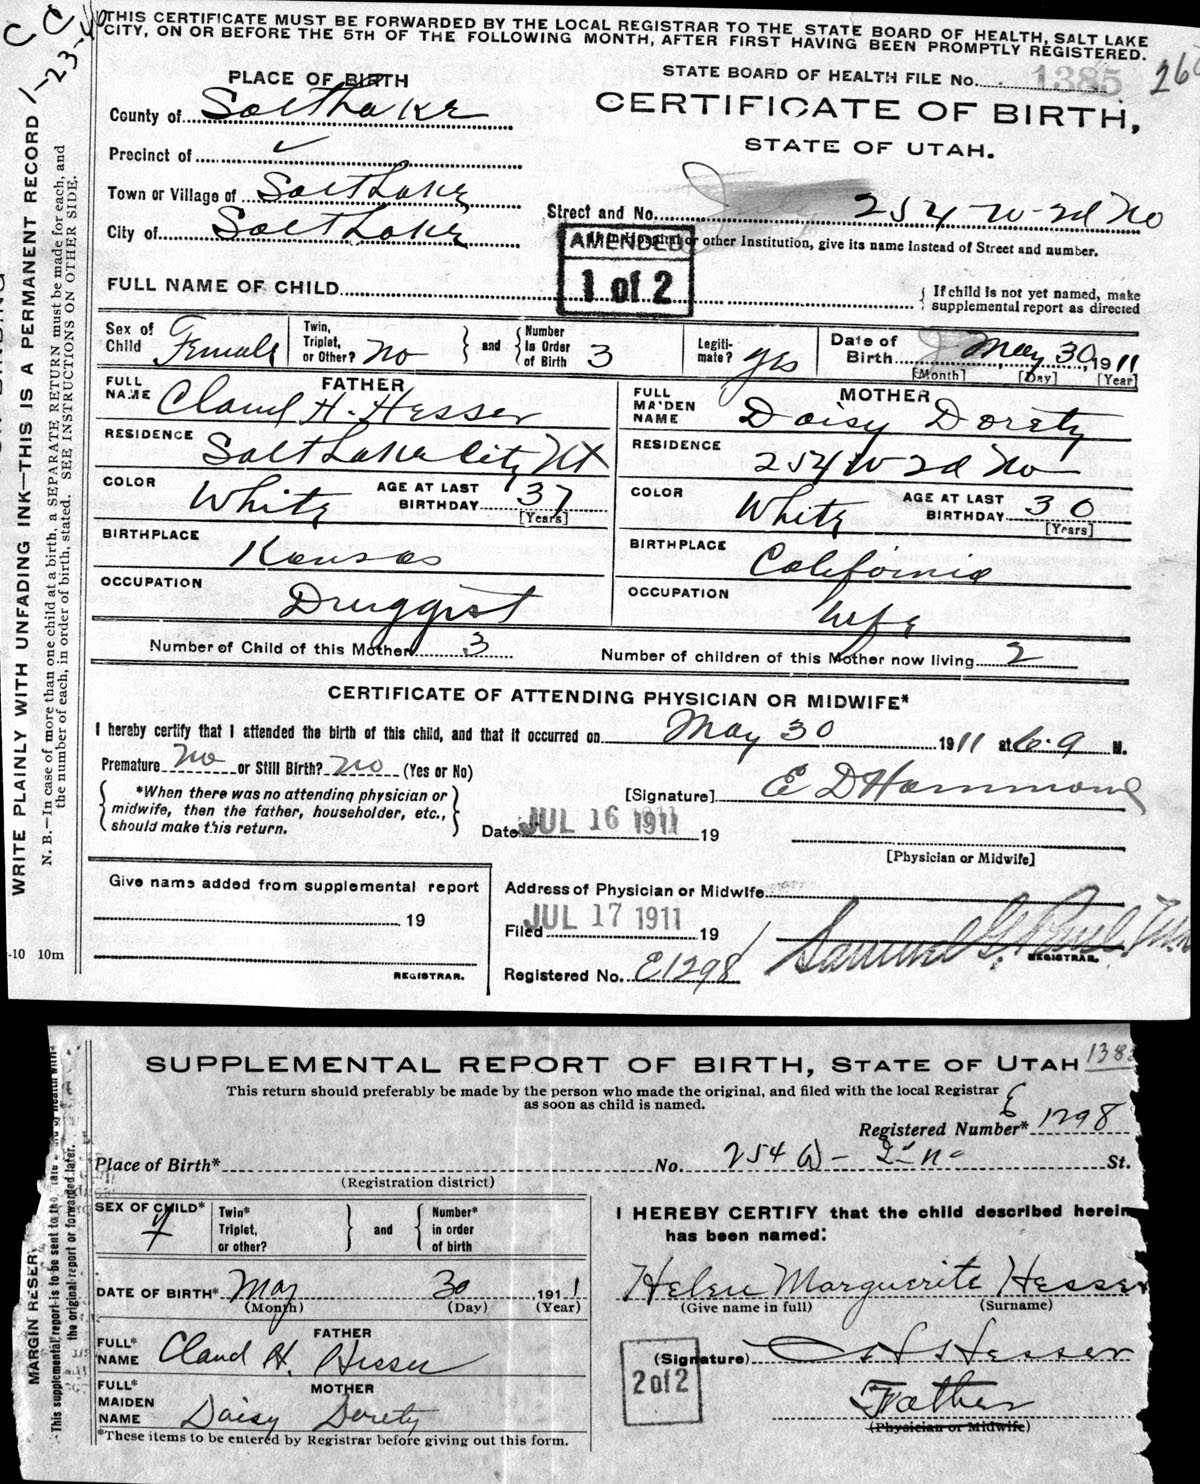 C C
1-23-40
THIS CERTIFICATE MUST BE FORWARDED BY THE LOCAL REGISTRAR TO THE STATE BOARD OF HEALTH, SALT LAKE
CITY, ON OR BEFORE THE 5TH OF THE FOLLOWING MONTH, AFTER FIRST HAVING BEEN PROMPTLY REGISTERED.
PLACE OF BIRTH
STATE BOARD OF HEALTH FILE No. 1385 260
County of Salt Lake
CERTIFICATE OF BIRTH,
STATE OF UTAH.
Precinct of
Town or Village of Salt Lake
Street and No. 254 W-2d No
City of Salt Lake
or other Institution, give its name instead of Street and number.
AMENDED
1 of 2
FULL NAME OF CHILD
If child is not yet named, make
supplemental report as directed
Sex of Child Female
Twin, Triplet, or Other? No and Number in Order of Birth 3
Legitimate? yes
Date of Birth May 30, 1911
[Month] [Day] [Year]
FATHER
FULL NAME Claud H. Hesser
RESIDENCE Salt Lake City Ut
COLOR White AGE AT LAST BIRTHDAY 37 [Years]
BIRTHPLACE Kansas
OCCUPATION Druggist
MOTHER
FULL MAIDEN NAME Daisy Dorety
RESIDENCE 254 W-2d No
COLOR White AGE AT LAST BIRTHDAY 30 [Years]
BIRTHPLACE California
OCCUPATION Wife
Number of Child of this Mother 3
Number of children of this Mother now living 2
CERTIFICATE OF ATTENDING PHYSICIAN OR MIDWIFE*
I hereby certify that I attended the birth of this child, and that it occurred on May 30 1911 at M.
Premature no or Still Birth? no (Yes or No)
*When there was no attending physician or
midwife, then the father, householder, etc.,
should make this return.
[Signature] E D Hammond
Date JUL 16 1911 19
[Physician or Midwife]
Give name added from supplemental report
19
REGISTRAR.
Address of Physician or Midwife
Filed JUL 17 1911 19
Samuel G. Paul
REGISTRAR.
Registered No. E1298
WRITE PLAINLY WITH UNFADING INK—THIS IS A PERMANENT RECORD
N. B.—In case of more than one child at a birth, a SEPARATE RETURN must be made for each, and
the number of each, in order of birth, stated. SEE INSTRUCTIONS ON OTHER SIDE.
-10 10m
SUPPLEMENTAL REPORT OF BIRTH, STATE OF UTAH 138
This return should preferably be made by the person who made the original, and filed with the local Registrar
as soon as child is named.
Registered Number* E 1298
Place of Birth* No. 254 W- 2nd No St.
(Registration district)
SEX OF CHILD* F
Twin* Triplet, or other? and Number* in order of birth
DATE OF BIRTH* May 30, 1911
(Month) (Day) (Year)
FATHER
FULL* NAME Claud H. Hesser
MOTHER
FULL* MAIDEN NAME Daisy Dorety
*These items to be entered by Registrar before giving out this form.
I HEREBY CERTIFY that the child described herein
has been named:
Helen Marguerite Hesser
(Give name in full) (Surname)
(Signature) C H Hesser
Father
(Physician or Midwife)
2 of 2
MARGIN RESERV
This supplemental report is to be sent to the
the original report or forwarded later.